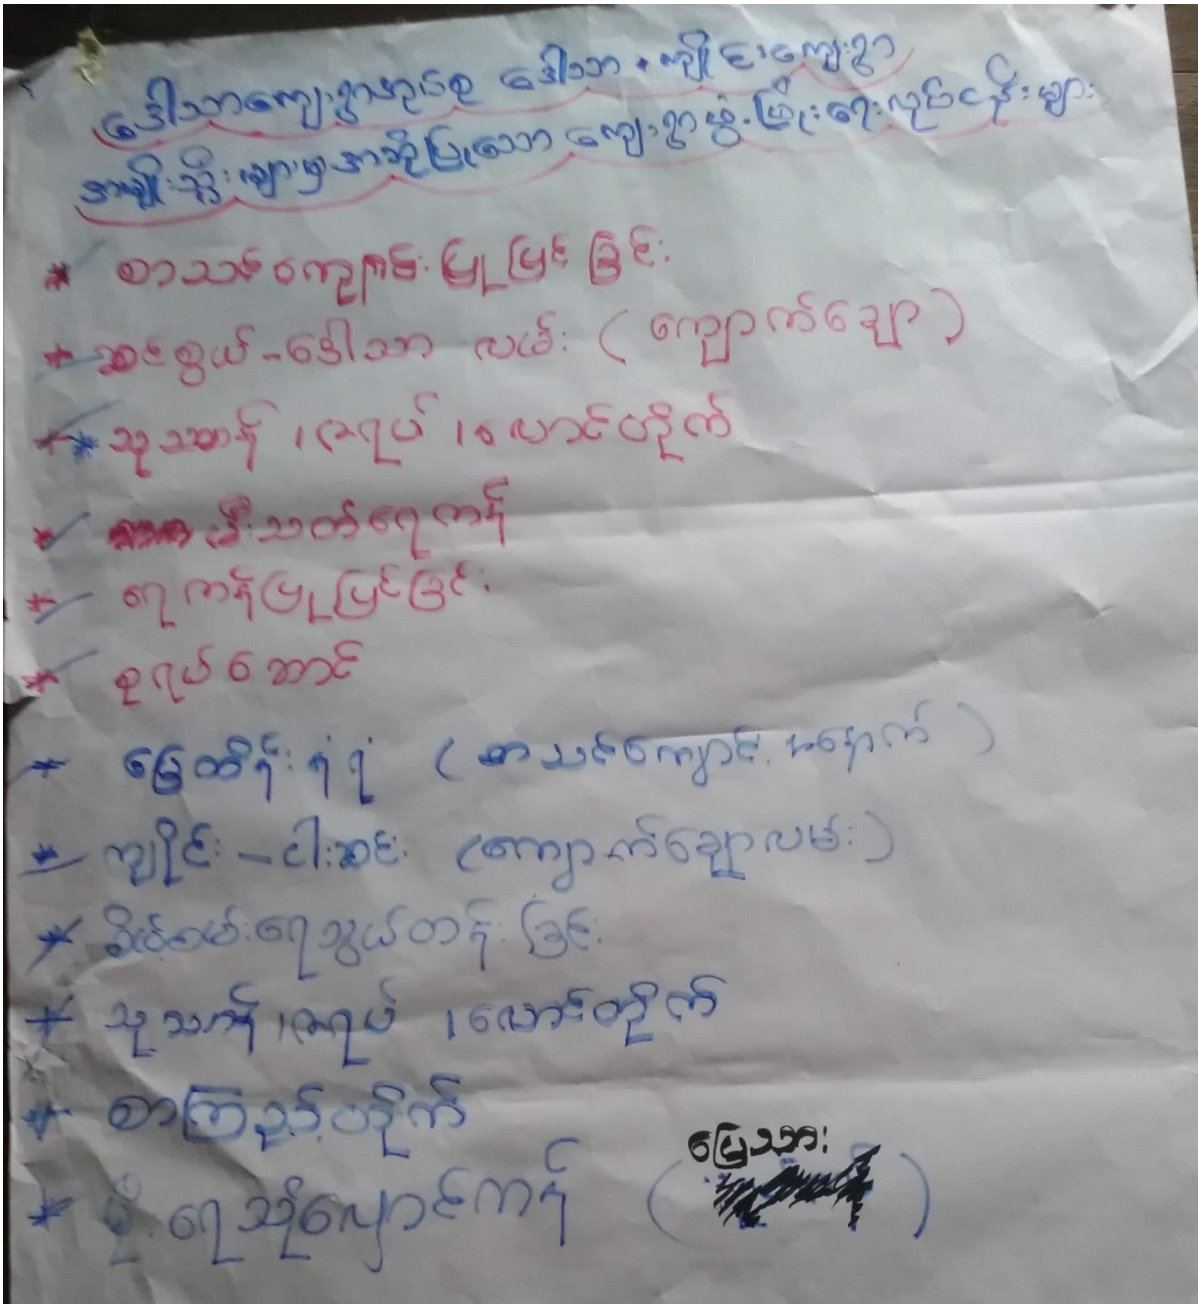 ဒေါသာကျေးရွာအုပ်စု ဒေါသာ + ကျိုင်းကျေးရွာ
အမျိုးသ္မီးများမှအဆိုပြုသော ကျေးရွာဖွံ့ဖြိုးရေးလုပ်ငန်းများ
* စာသင်ကျောင်းပြုပြင်ခြင်း
* ဆင်စွယ် - ဒေါသာ လမ်း (ကျောက်ချော)
* သုသာန် ၊ ဇရပ် ၊ လောင်တိုက်
* မီးသတ်ရေကန်
* ရေကန်ပြုပြင်ခြင်း
* စုရပ်ဆောင်
* မြေထိန်းနံရံ (စာသင်ကျောင်းအနောက်)
* ကျိုင်း - ငါးဆင်း (ကျောက်ချောလမ်း)
* စိမ့်စမ်းရေသွယ်တန်းခြင်း
* သုသာန် ၊ ဇရပ် ၊ လောင်တိုက်
* စာကြည့်တိုက်
* မိုးရေသိုလှောင်ကန် (မြေသား)